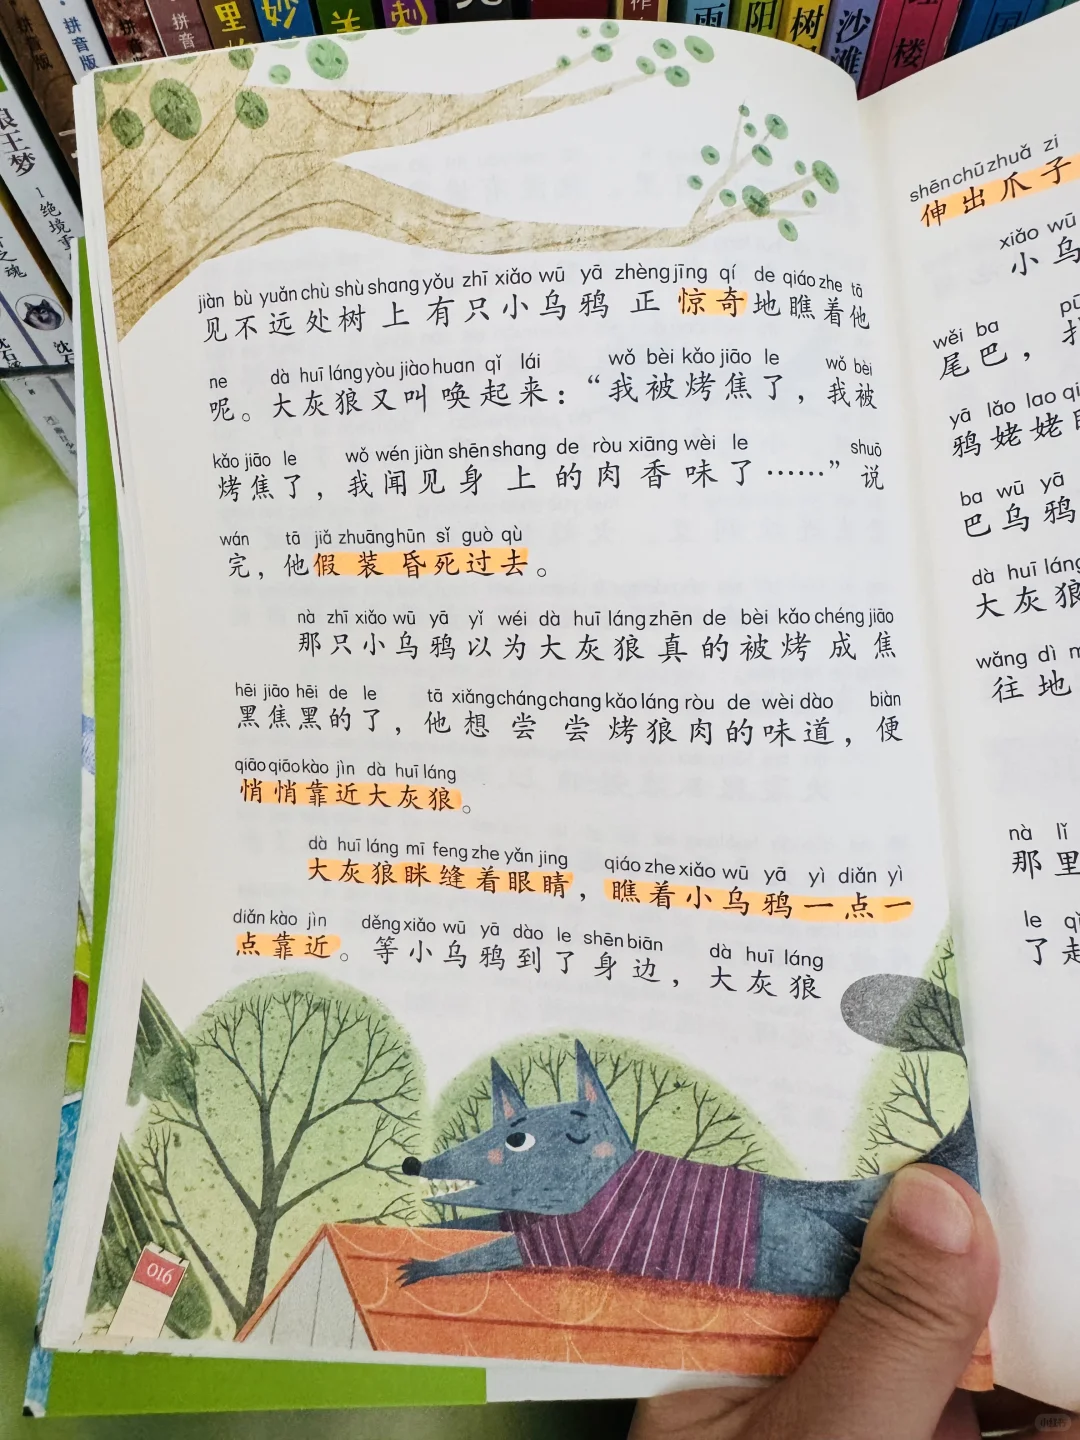 拼音版
拼音版
拼音版
狼王梦
jiàn bù yuǎn chù shù shang yǒu zhī xiǎo wū yā zhèng jīng qí de qiáo zhe tā
见不远处树上有只小乌鸦正惊奇地瞧着他
ne dà huī láng yòu jiào huan qǐ lái wǒ bèi kǎo jiāo le wǒ bèi
呢。大灰狼又叫唤起来：“我被烤焦了，我被
kǎo jiāo le wǒ wén jiàn shēn shang de ròu xiāng wèi le shuō
烤焦了，我闻见身上的肉香味了……”说
wán tā jiǎ zhuāng hūn sǐ guò qù
完，他假装昏死过去。
nà zhī xiǎo wū yā yǐ wéi dà huī láng zhēn de bèi kǎo chéng jiāo
那只小乌鸦以为大灰狼真的被烤成焦
hēi jiāo hēi de le tā xiǎng cháng chang kǎo láng ròu de wèi dào biàn
黑焦黑的了，他想尝尝烤狼肉的味道，便
qiāo qiāo kào jìn dà huī láng
悄悄靠近大灰狼。
dà huī láng mī feng zhe yǎn jing qiáo zhe xiǎo wū yā yì diǎn yì
大灰狼眯缝着眼睛，瞧着小乌鸦一点一
diǎn kào jìn děng xiǎo wū yā dào le shēn biān dà huī láng
点靠近。等小乌鸦到了身边，大灰狼
016
shēn chū zhuǎ zi
伸出爪子
xiǎo wū
小乌
wěi ba
尾巴，
yā lǎo lao
鸦姥姥
ba wū yā
巴乌鸦
dà huī láng
大灰狼
wǎng dì
往地
nà lǐ
那里
le
了起
小红书